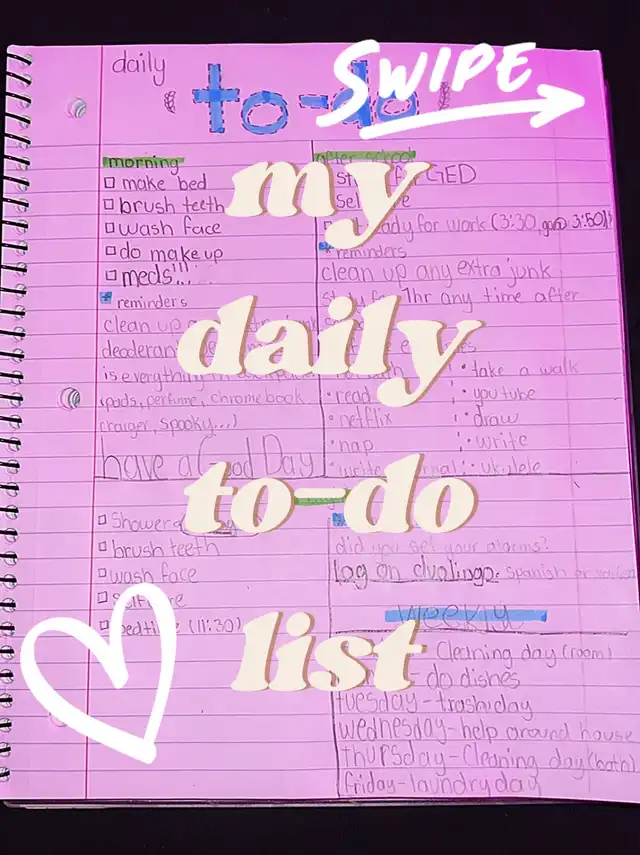 SWIPE
my
daily
to-do
list
daily
to-do
morning
make bed
brush teeth
wash face
do makeup
meds!!!
reminders
clean up
is everything in
pads, perfume, chromebook
charger, spooky...)
have a Good Day
after school
GED
ready for work (3:30, 3:50)
reminders
clean up any extra junk
1hr any time after
read
netflix
nap
take a walk
youtube
draw
write
ukulele
Shower
brush teeth
wash face
bedtime (11:30)
did you set your alarms?
log on duolingo: Spanish or
weekly
Cleaning day (room)
do dishes
tuesday-trash day
wednesday-help around house
thursday-Cleaning day (bath)
friday-laundry day